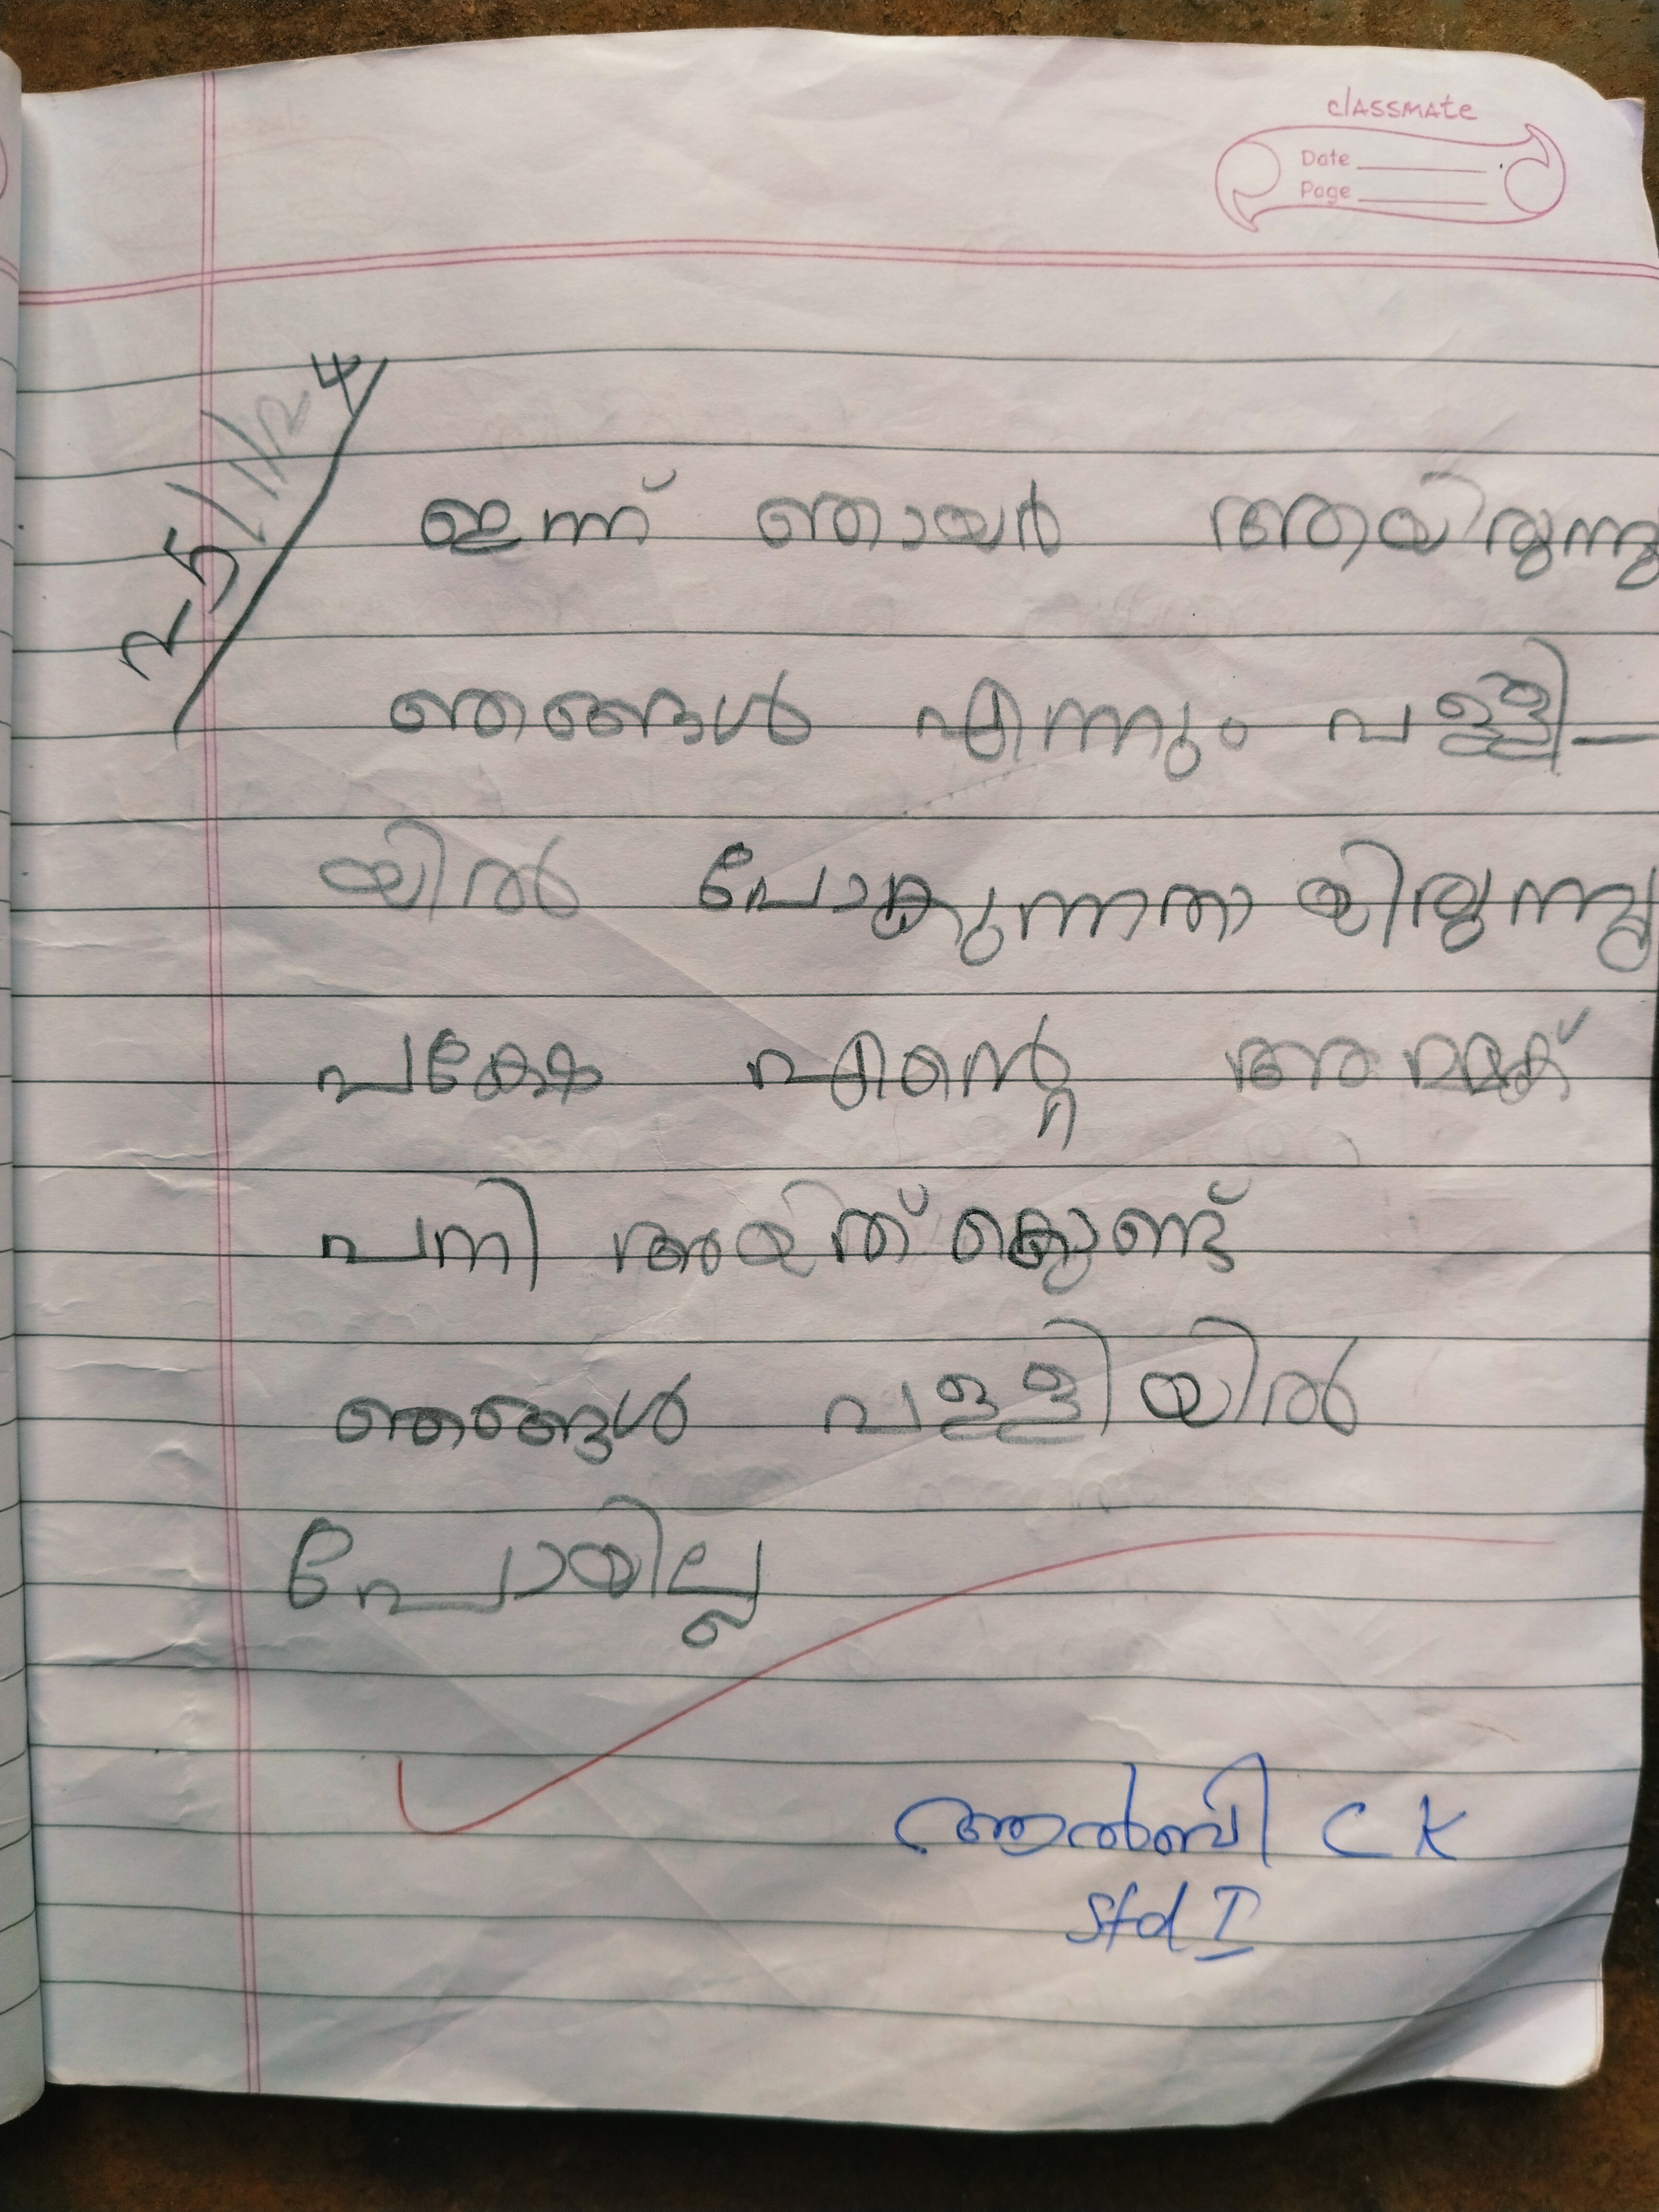 classmate
Date
Page
25/1/24
ഇന്ന് ഞായർ ആയിരുന്നു
ഞങ്ങൾ എന്നും പള്ളി-
യിൽ പോകുന്നതായിരുന്നു
പക്ഷേ എന്റെ അമ്മക്ക്
പനി ആയത് കൊണ്ട്
ഞങ്ങൾ പള്ളിയിൽ
പോയില്ല
ആൽബി C K
Std I